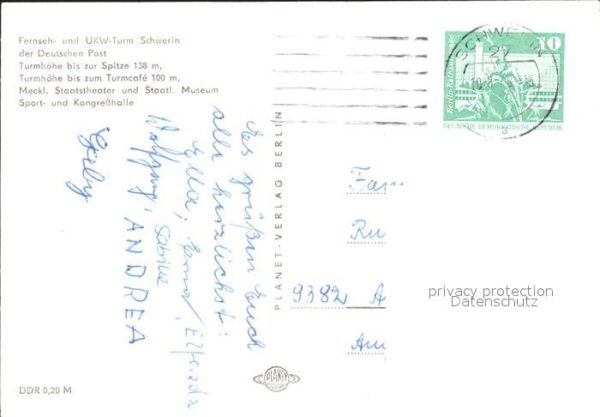 Fernseh- und UKW-Turm Schwerin
der Deutschen Post
Turmhöhe bis zur Spitze 138 m,
Turmhöhe bis zum Turmcafé 100 m,
Meckl. Staatstheater und Staatl. Museum
Sport- und Kongreßhalle
SCHWERIN
27
10
DEUTSCHE DEMOKRATISCHE REPUBLIK
Es grüßen Euch
alle herzlichst:
Ella, Erna, Elfrieda
Wolfgang, Sabine
ANDREA
Gaby
PLANET-VERLAG BERLIN
Fam
Ru
9382 A
Am
privacy protection
Datenschutz
PLANET
DDR 0,20 M